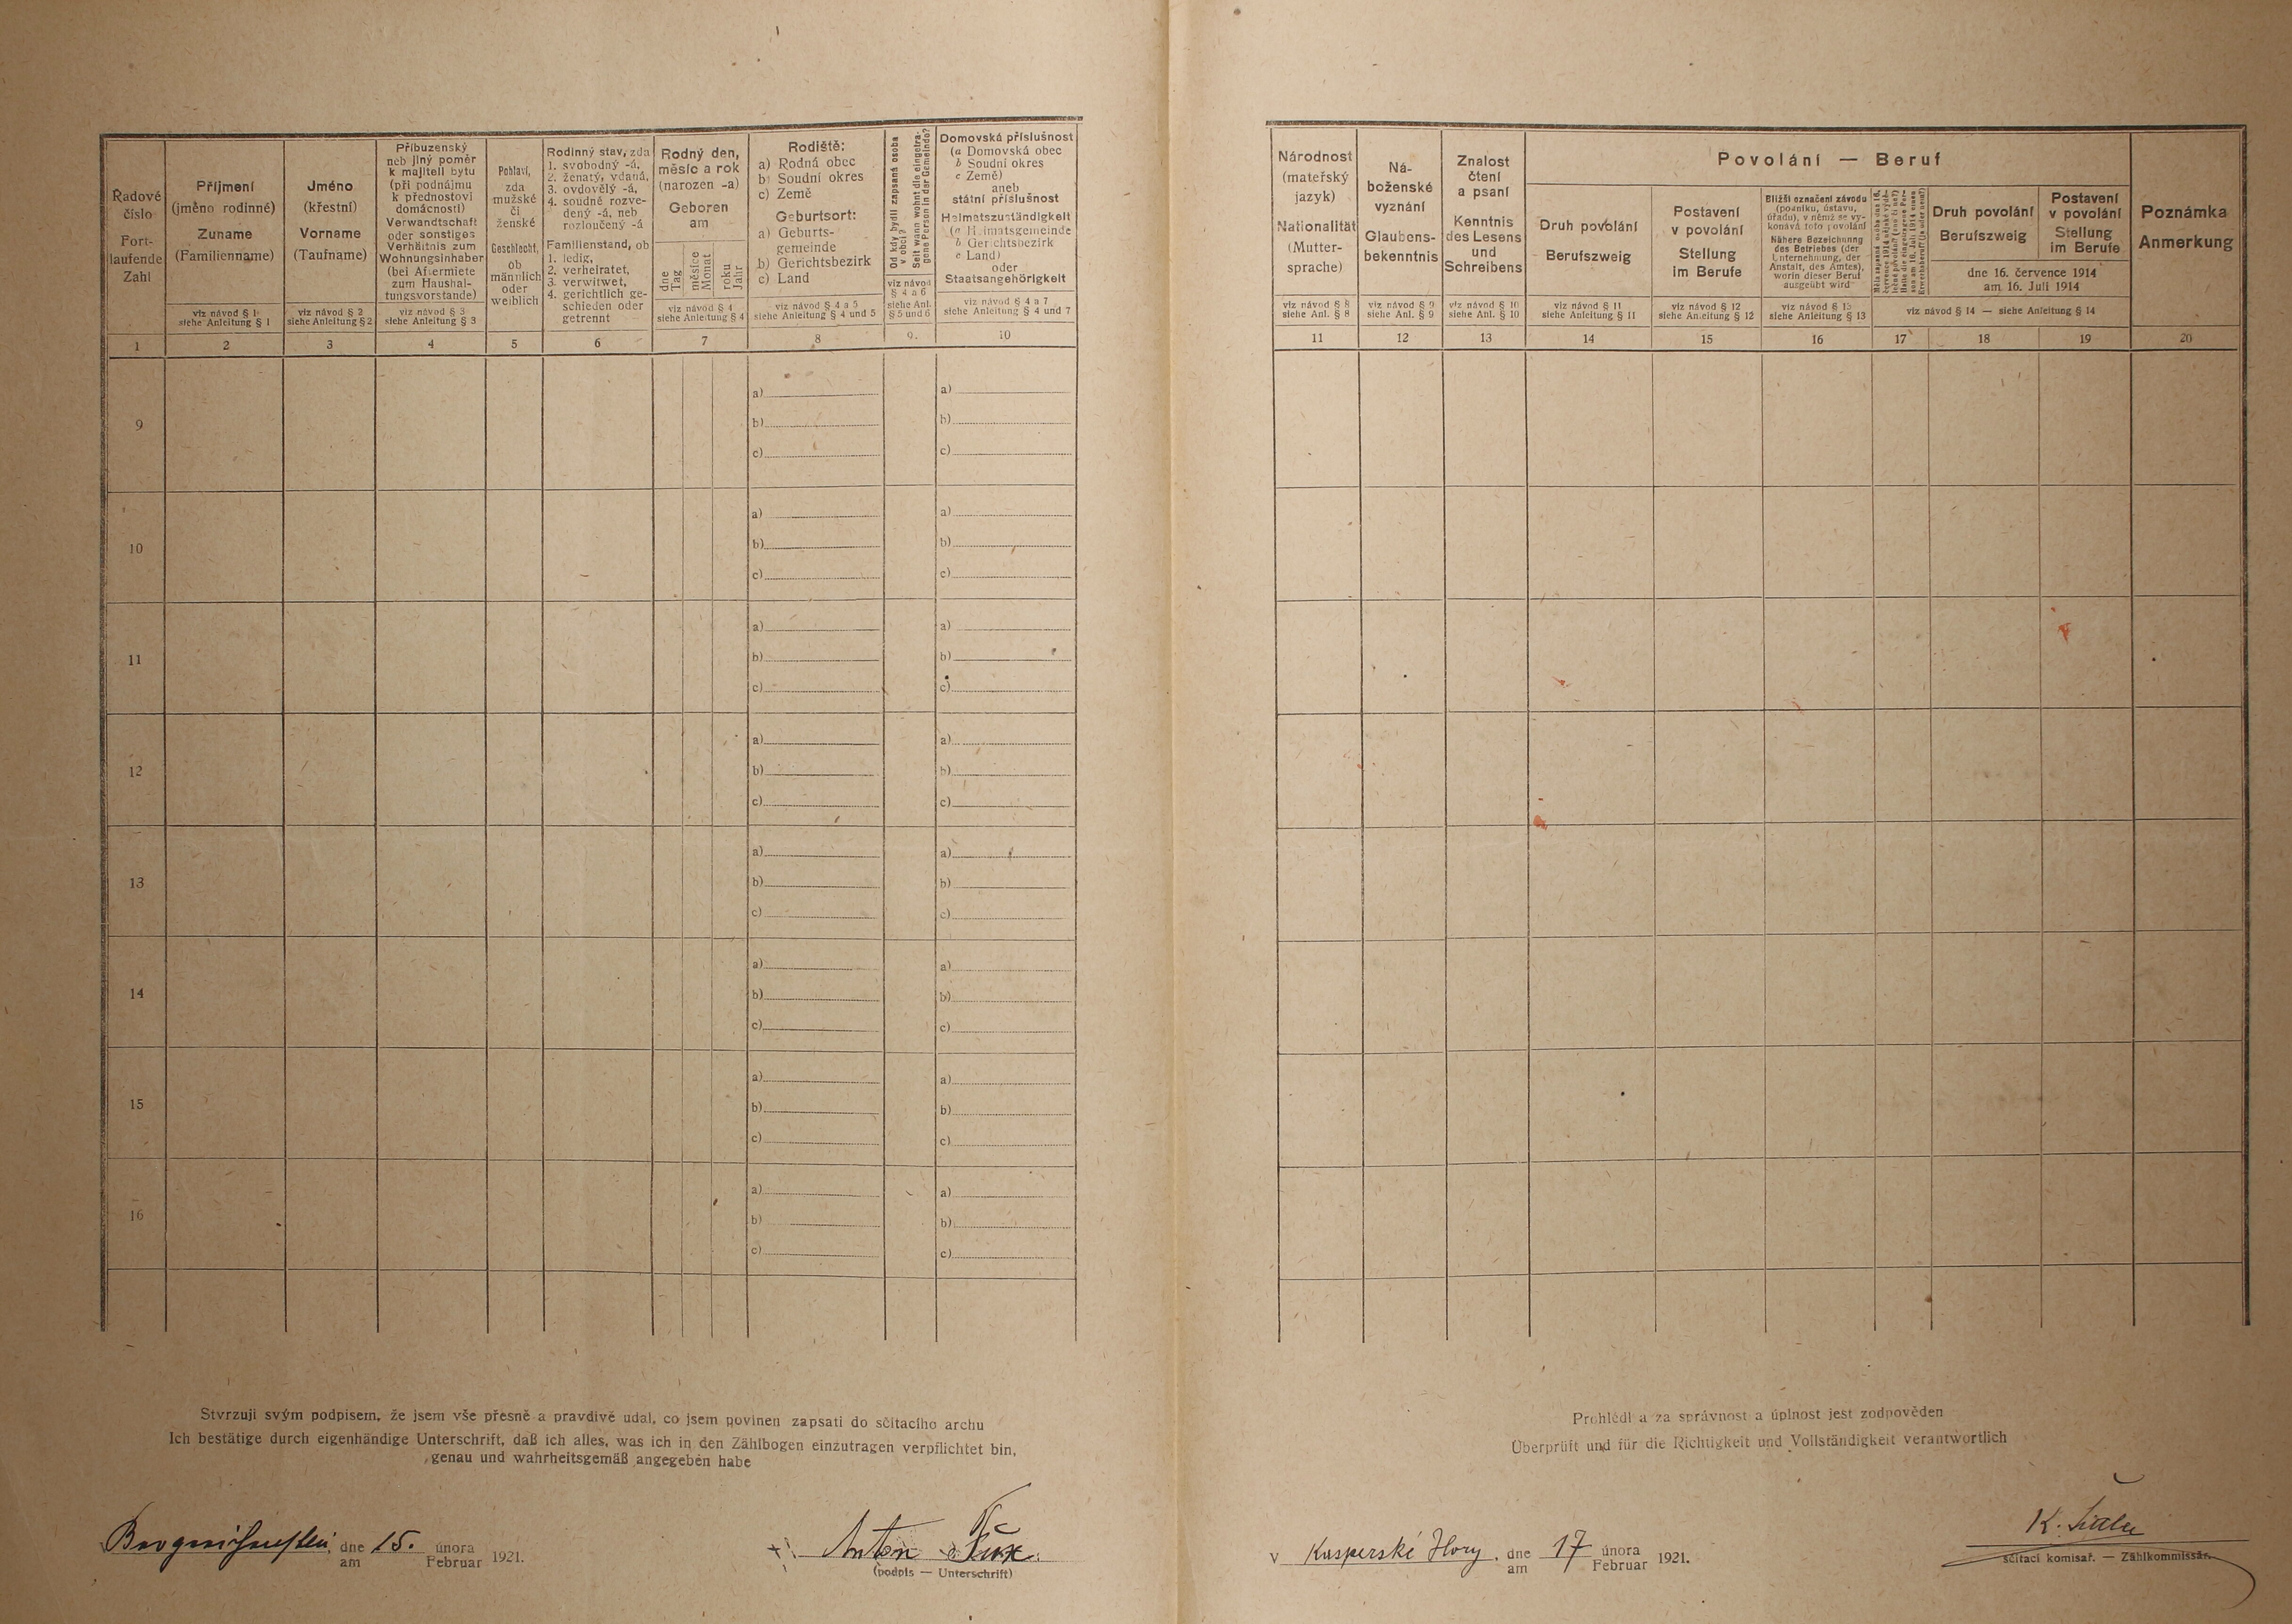 Řadové
číslo
Fort-
laufende
Zahl
1
Příjmení
(jméno rodinné)
Zuname
(Familienname)
viz návod § 1
siehe Anleitung § 1
2
Jméno
(křestní)
Vorname
(Taufname)
viz návod § 2
siehe Anleitung § 2
3
Příbuzenský
neb jiný poměr
k majiteli bytu
(při podnájmu
k přednostovi
domácnosti)
Verwandtschaft
oder sonstiges
Verhältnis zum
Wohnungsinhaber
(bei Aftermiete
zum Haushal-
tungsvorstande)
viz návod § 3
siehe Anleitung § 3
4
Pohlaví,
zda
mužské
či
ženské
Geschlecht,
ob
männlich
oder
weiblich
5
Rodinný stav, zda
1. svobodný -á,
2. ženatý, vdaná,
3. ovdovělý -á,
4. soudně rozve-
dený -á, neb
rozloučený -á
Familienstand, ob
1. ledig,
2. verheiratet,
3. verwitwet,
4. gerichtlich ge-
schieden oder
getrennt
6
Rodný den,
měsíc a rok
(narozen -a)
Geboren
am
dne
Tag
měsíce
Monat
roku
Jahr
viz návod § 4
siehe Anleitung § 4
7
Rodiště:
a) Rodná obec
b) Soudní okres
c) Země
Geburtsort:
a) Geburts-
gemeinde
b) Gerichtsbezirk
c) Land
viz návod § 4 a 5
siehe Anleitung § 4 und 5
8
Od kdy bydlí zapsaná osoba
v obci?
Seit wann wohnt die eingetra-
gene Person in der Gemeinde?
viz návod
§ 4 a 6
siehe Anl.
§ 5 und 6
9.
Domovská příslušnost
(a Domovská obec
b Soudní okres
c Země)
aneb
státní příslušnost
Heimatszuständigkeit
(a Heimatsgemeinde
b Gerichtsbezirk
c Land)
oder
Staatsangehörigkeit
viz návod § 4 a 7
siehe Anleitung § 4 und 7
10
Národnost
(mateřský
jazyk)
Nationalität
(Mutter-
sprache)
viz návod § 8
siehe Anl. § 8
11
Ná-
boženské
vyznání
Glaubens-
bekenntnis
viz návod § 9
siehe Anl. § 9
12
Znalost
čtení
a psaní
Kenntnis
des Lesens
und
Schreibens
viz návod § 10
siehe Anl. § 10
13
Povolání — Beruf
Druh povolání
Berufszweig
viz návod § 11
siehe Anleitung § 11
14
Postavení
v povolání
Stellung
im Berufe
viz návod § 12
siehe Anleitung § 12
15
Bližší označení závodu
(podniku, ústavu,
úřadu), v němž se vy-
konává toto povolání
Nähere Bezeichnung
des Betriebes (der
Unternehmung, der
Anstalt, des Amtes),
worin dieser Beruf
ausgeübt wird
viz návod § 13
siehe Anleitung § 13
16
17
Druh povolání
Berufszweig
18
Postavení
v povolání
Stellung
im Berufe
19
dne 16. července 1914
am 16. Juli 1914
viz návod § 14 — siehe Anleitung § 14
Poznámka
Anmerkung
20
9
a)
b)
c)
a)
b)
c)
10
a)
b)
c)
a)
b)
c)
11
a)
b)
c)
a)
b)
c)
12
a)
b)
c)
a)
b)
c)
13
a)
b)
c)
a)
b)
c)
14
a)
b)
c)
a)
b)
c)
15
a)
b)
c)
a)
b)
c)
16
a)
b)
c)
a)
b)
c)
Stvrzuji svým podpisem, že jsem vše přesně a pravdivě udal, co jsem povinen zapsati do sčítacího archu
Ich bestätige durch eigenhändige Unterschrift, daß ich alles, was ich in den Zählbogen einzutragen verpflichtet bin,
genau und wahrheitsgemäß angegeben habe
dne 15. února
am Februar 1921.
Anton
(podpis — Unterschrift)
Prohlédl a za správnost a úplnost jest zodpověden
Überprüft und für die Richtigkeit und Vollständigkeit verantwortlich
V Kasperské Hory, dne 17 února
am Februar 1921.
K.
sčítací komisař. — Zählkommissär.